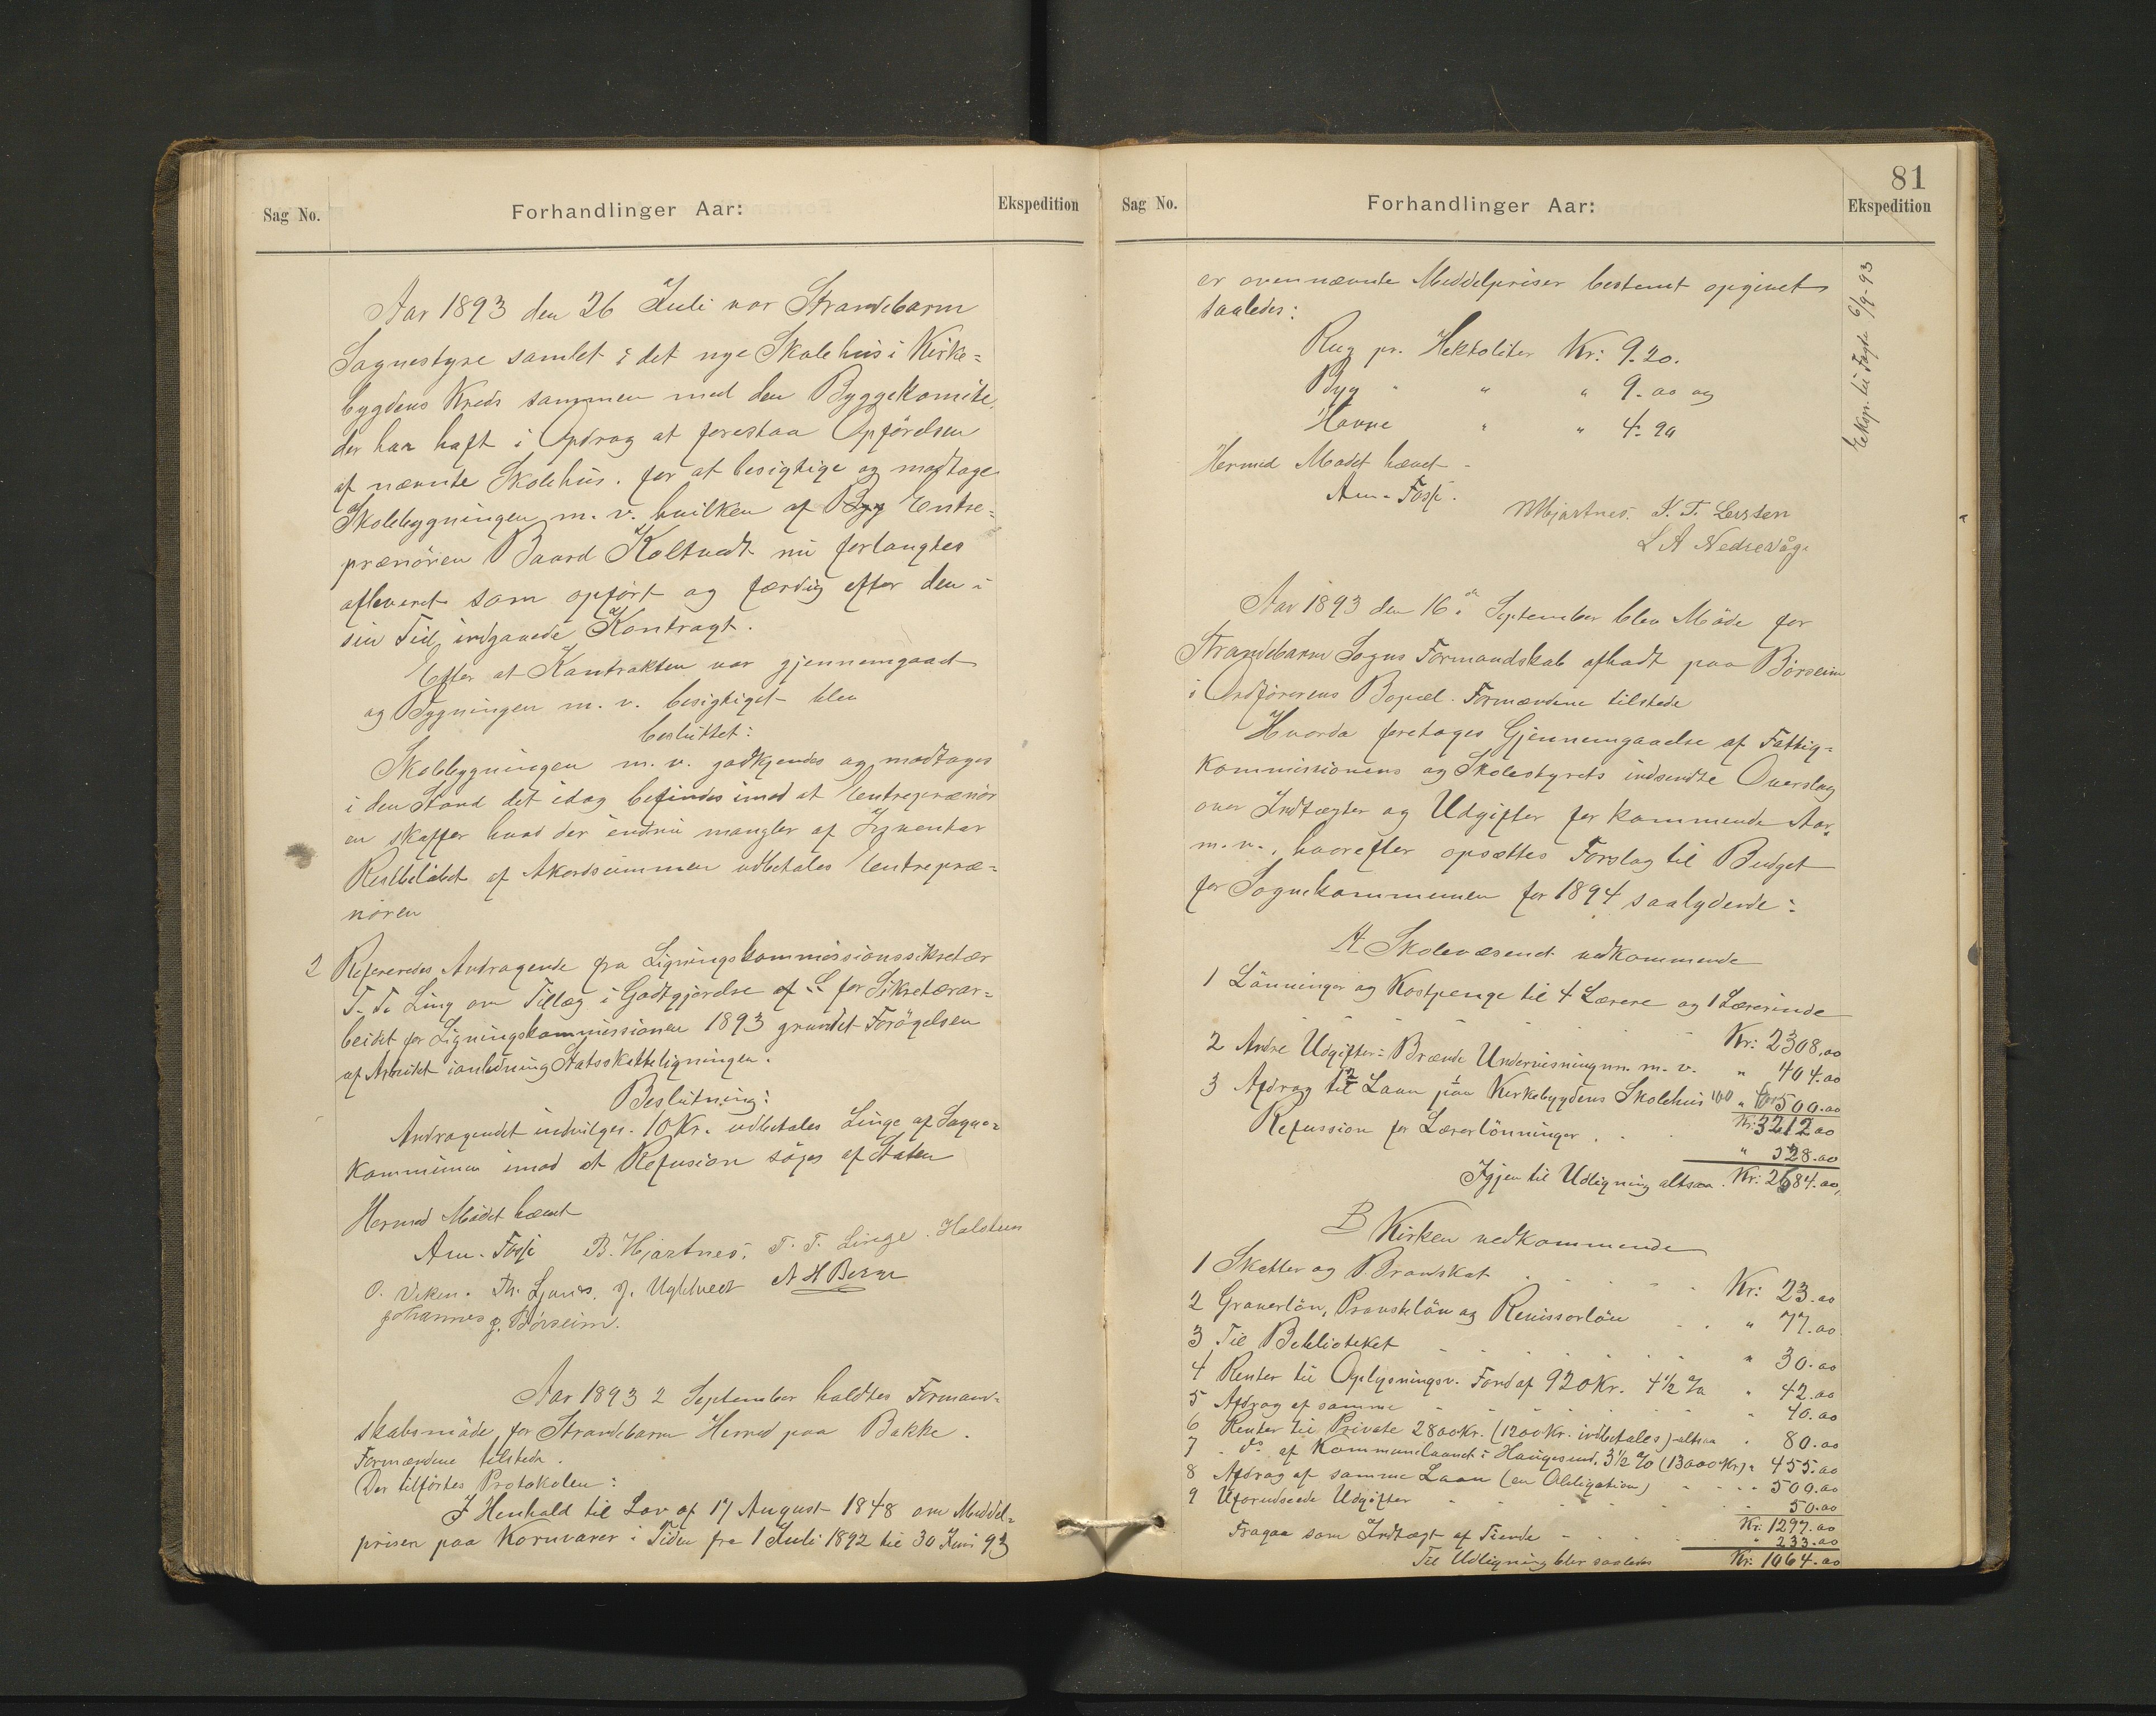 Sag No.
Forhandlinger Aar:
Ekspedition
Aar 1893 den 26 Juli var Strandebarm
Sognestyre samlet i det nye Skolehus i Kirke=
bygdens Kreds sammen med den Byggekomite,
der har haft i Opdrag at forestaa Opførelsen
af nævnte Skolehus. for at besigtige og modtage
Skolebygningen m. v. hvilken af Entre=
prenören Baard Koltvedt nu forlangtes
afleveret som opført og færdig efter den i
sin Tid indgaaede Kontragt.
Efter at Kontrakten var gjennemgaaet
og Bygningen m. v. besigtiget blev
besluttet:
Skolebygningen m. v. godkjendes og modtages
i den Stand det idag befindes imod at Entreprenör
en skaffer hvad der endnu mangler af Inventar
Restbeløbet af Akordsummen udbetales Entrepre=
nören
2 Refereredes Andragende fra Ligningskommissionssekretær
T. T. Ling om Tillæg i Godtgjørelse for Sekretærar=
beidet for Ligningskommissionen 1893 grundet Forögelsen
af Arbeidet ianledning Statsskatteligningen.
Beslutning:
Andragendet indvilges. 10 Kr. udbetales Linge af Sogne=
kommunen imod at Refusion søges af Staten
Hermed Mødet hævet
Am. Fosse B. Hjartnes. T. T. Linge. Halsteen
O. Viken. Th. Ljones. J. Ugletveit A H Berge
Johannes J. Börseim.
Aar 1893 2 September holdtes Formand=
skabsmøde for Strandebarm Herred paa Bakke.
Formændene tilstede.
Der tilførtes Protokolen:
I Henhold til Lov af 17 August 1848 om Middel=
prisen paa Kornvarer i Tiden fra 1 Juli 1892 til 30 Juni 93
81
Sag No.
Forhandlinger Aar:
Ekspedition
er ovennævnte Middelpriser bestemt opgivet
saaledes:
Rug pr. Hektoliter Kr: 9.20.
Byg " " " 9.00 og
Havre " " 4.90
Hermed Mødet hævet
Am. Fosse.
Hjartnes. K. T. Lersten
L A Nedrevåge
Eksp. til Fogde 6/9-93
Aar 1893 den 16de September blev Möde for
Strandebarm Sogns Formandskab afholdt paa Börseim
i Ordførerens Bopæl. Formændene tilstede
Hvorda foretages Gjennemgaaelse af Fattig=
kommissionens og Skolestyrets indsendte Overslag
over Indtægter og Udgifter for kommende Aar
m. v., hvorefter opsættes Forslag til Budget
for Sognekommunen for 1894 saalydende:
A Skolevæsenet vedkommende
1 Lönninger og Kostpenge til 4 Lærere og 1 Lærerinde
Kr: 2308.00
2 Andre Udgifter: Brænde Undervisningsm. m. v. " 404.00
3 Afdrag til Laan paa Kirkebygdens Skolehus " 500.00
Kr: 3212.00
Refussion for Lærerlönninger . . . " 528.00
Igjen til Udligning altsaa. Kr: 2684.00
B Kirken vedkommende
1 Skatter og Brandskat . . . Kr: 23.00
2 Graverlön, Provstelön og Revissorlön . . " 77.00
3 Til Biblioteket " 30.00
4 Renter til Oplysningsv. Fond af 920 Kr. 4½ % " 42.00
5 Afdrag af samme " 40.00
6 Renter til Private 2800 Kr. (1200 Kr. indbetales) altsaa " 80.00
7 " do af Kommunelaanet i Haugesund. 3½ % (13000 Kr) " 455.00
8 Afdrag af samme Laan (en Obligation) . . . 500.00
9 Uforudseede Udgifter 50.00
Kr. 1297.00
Fragaar som Indtægt af Tiende . . . " 233.00
Til Udligning blir saaledes Kr: 1064.00